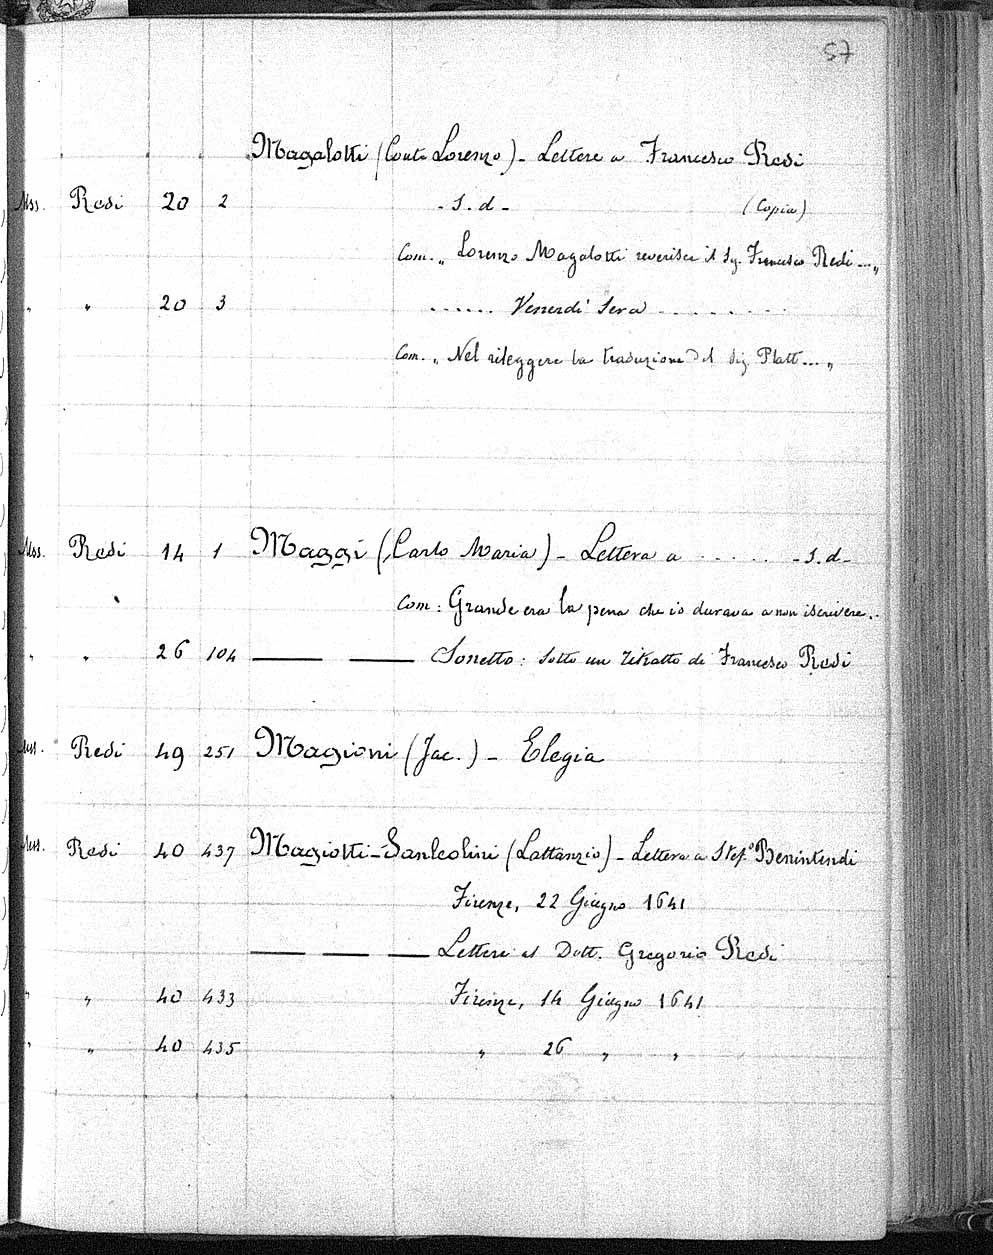 57
Magalotti (Conte Lorenzo) - Lettere a Francesco Redi
Mss. Redi 20 2 - s. d - (Copia)
Com. „ Lorenzo Magalotti reverisce il Sig. Francesco Redi ... „
„ „ 20 3 ...... Venerdi Sera ........
Com. „ Nel rileggere la traduzione del Sig. Platt ... „
Mss. Redi 14 1 Maggi (Carlo Maria) - Lettera a ..... - s. d -
Com : Grande era la pena che io durava a non iscrivere..
„ „ 26 104 — — Sonetto : Sotto un ritratto di Francesco Redi
Mss. Redi 49 251 Magioni (Jac.) - Elegia
Mss. Redi 40 437 Magiotti-Sanleolini (Lattanzio) - Lettera a Stef.º Benintendi
Firenze, 22 Giugno 1641
— — — Lettere al Dott. Gregorio Redi
„ „ 40 433 Firenze, 14 Giugno 1641
„ „ 40 435 „ 26 „ „